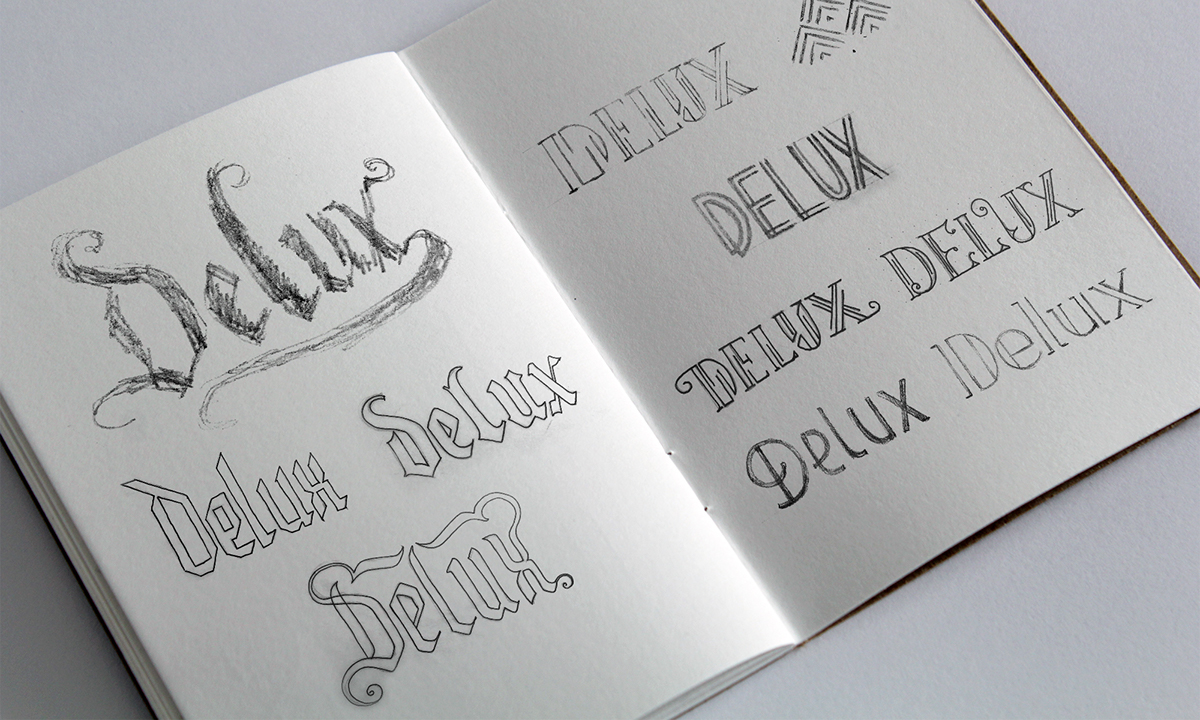 Delux
delux
Delux
Delux
DELUX
DELUX
DELUX
DELUX
Delux
Delux